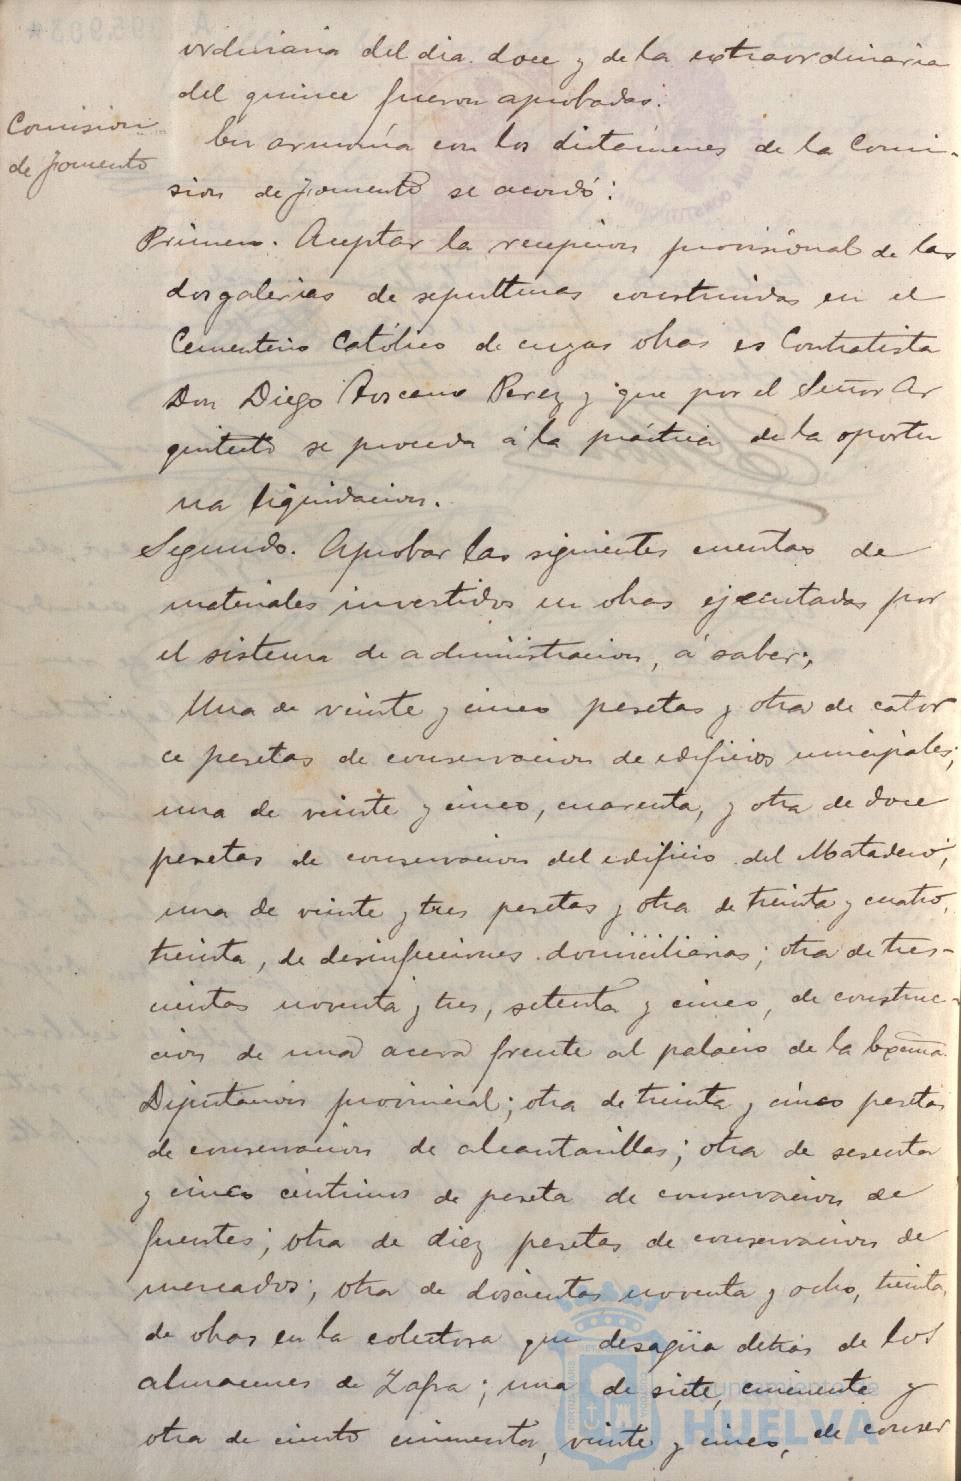 ordinaria del dia doce y de la extraordinaria
del quince fueron aprobadas.
Comision
de fomento
En armonía con los dictámenes de la Comi-
sion de fomento se acordó:
Primero. Aceptar la recepcion provisional de las
dos galerias de sepulturas construidas en el
Cementerio Católico de cuyas obras es Contratista
Don Diego Toscano Perez y que por el Señor Ar
quitecto se proceda á la práctica de la oportu
na liquidacion.
Segundo. Aprobar las siguientes cuentas de
materiales invertidos en obras ejecutadas por
el sistema de administracion, á saber:
Una de veinte y cinco pesetas y otra de cator
ce pesetas de conservacion de edificios municipales;
una de veinte y cinco, cuarenta, y otra de doce
pesetas de conservacion del edificio del Matadero;
una de veinte y tres pesetas y otra de treinta y cuatro,
treinta, de desinfecciones domiciliarias; otra de tres-
cientas noventa y tres, setenta y cinco, de construc-
cion de una acera frente al palacio de la Excma
Diputacion provincial; otra de treinta y cinco pesetas
de conservacion de alcantarillas; otra de sesenta
y cinco centimos de peseta de conservacion de
fuentes; otra de diez pesetas de conservacion de
mercados; otra de doscientas noventa y ocho, treinta,
de obras en la colectora que desagüa detras de los
almacenes de Zafra; una de siete, cincuenta y
otra de ciento cincuenta, veinte y cinco, de conser
Ayuntamiento de
HUELVA